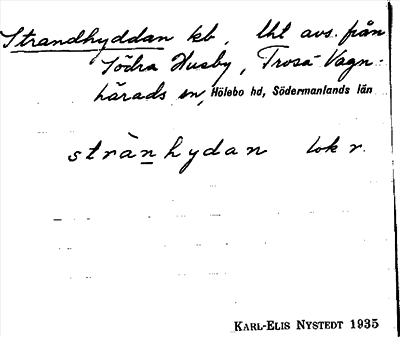 Strandhyddan kb, lht avs. från
Södra Husby, Trosa-Vagn-
härads sn, Hölebo hd, Södermanlands län
strànhydan lok r.
KARL-ELIS NYSTEDT 1935